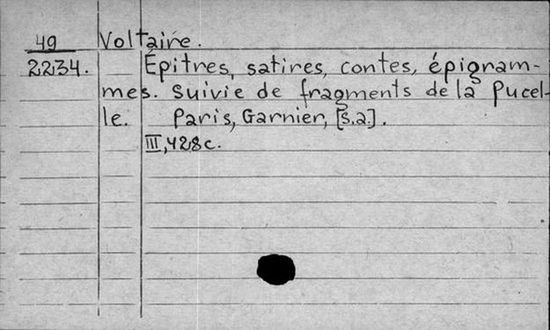 49 Voltaire.
2234. Épitres, satires, contes, épigram-
mes. Suivie de fragments de la Pucel-
le. Paris, Garnier, [s.a.].
III, 428 c.